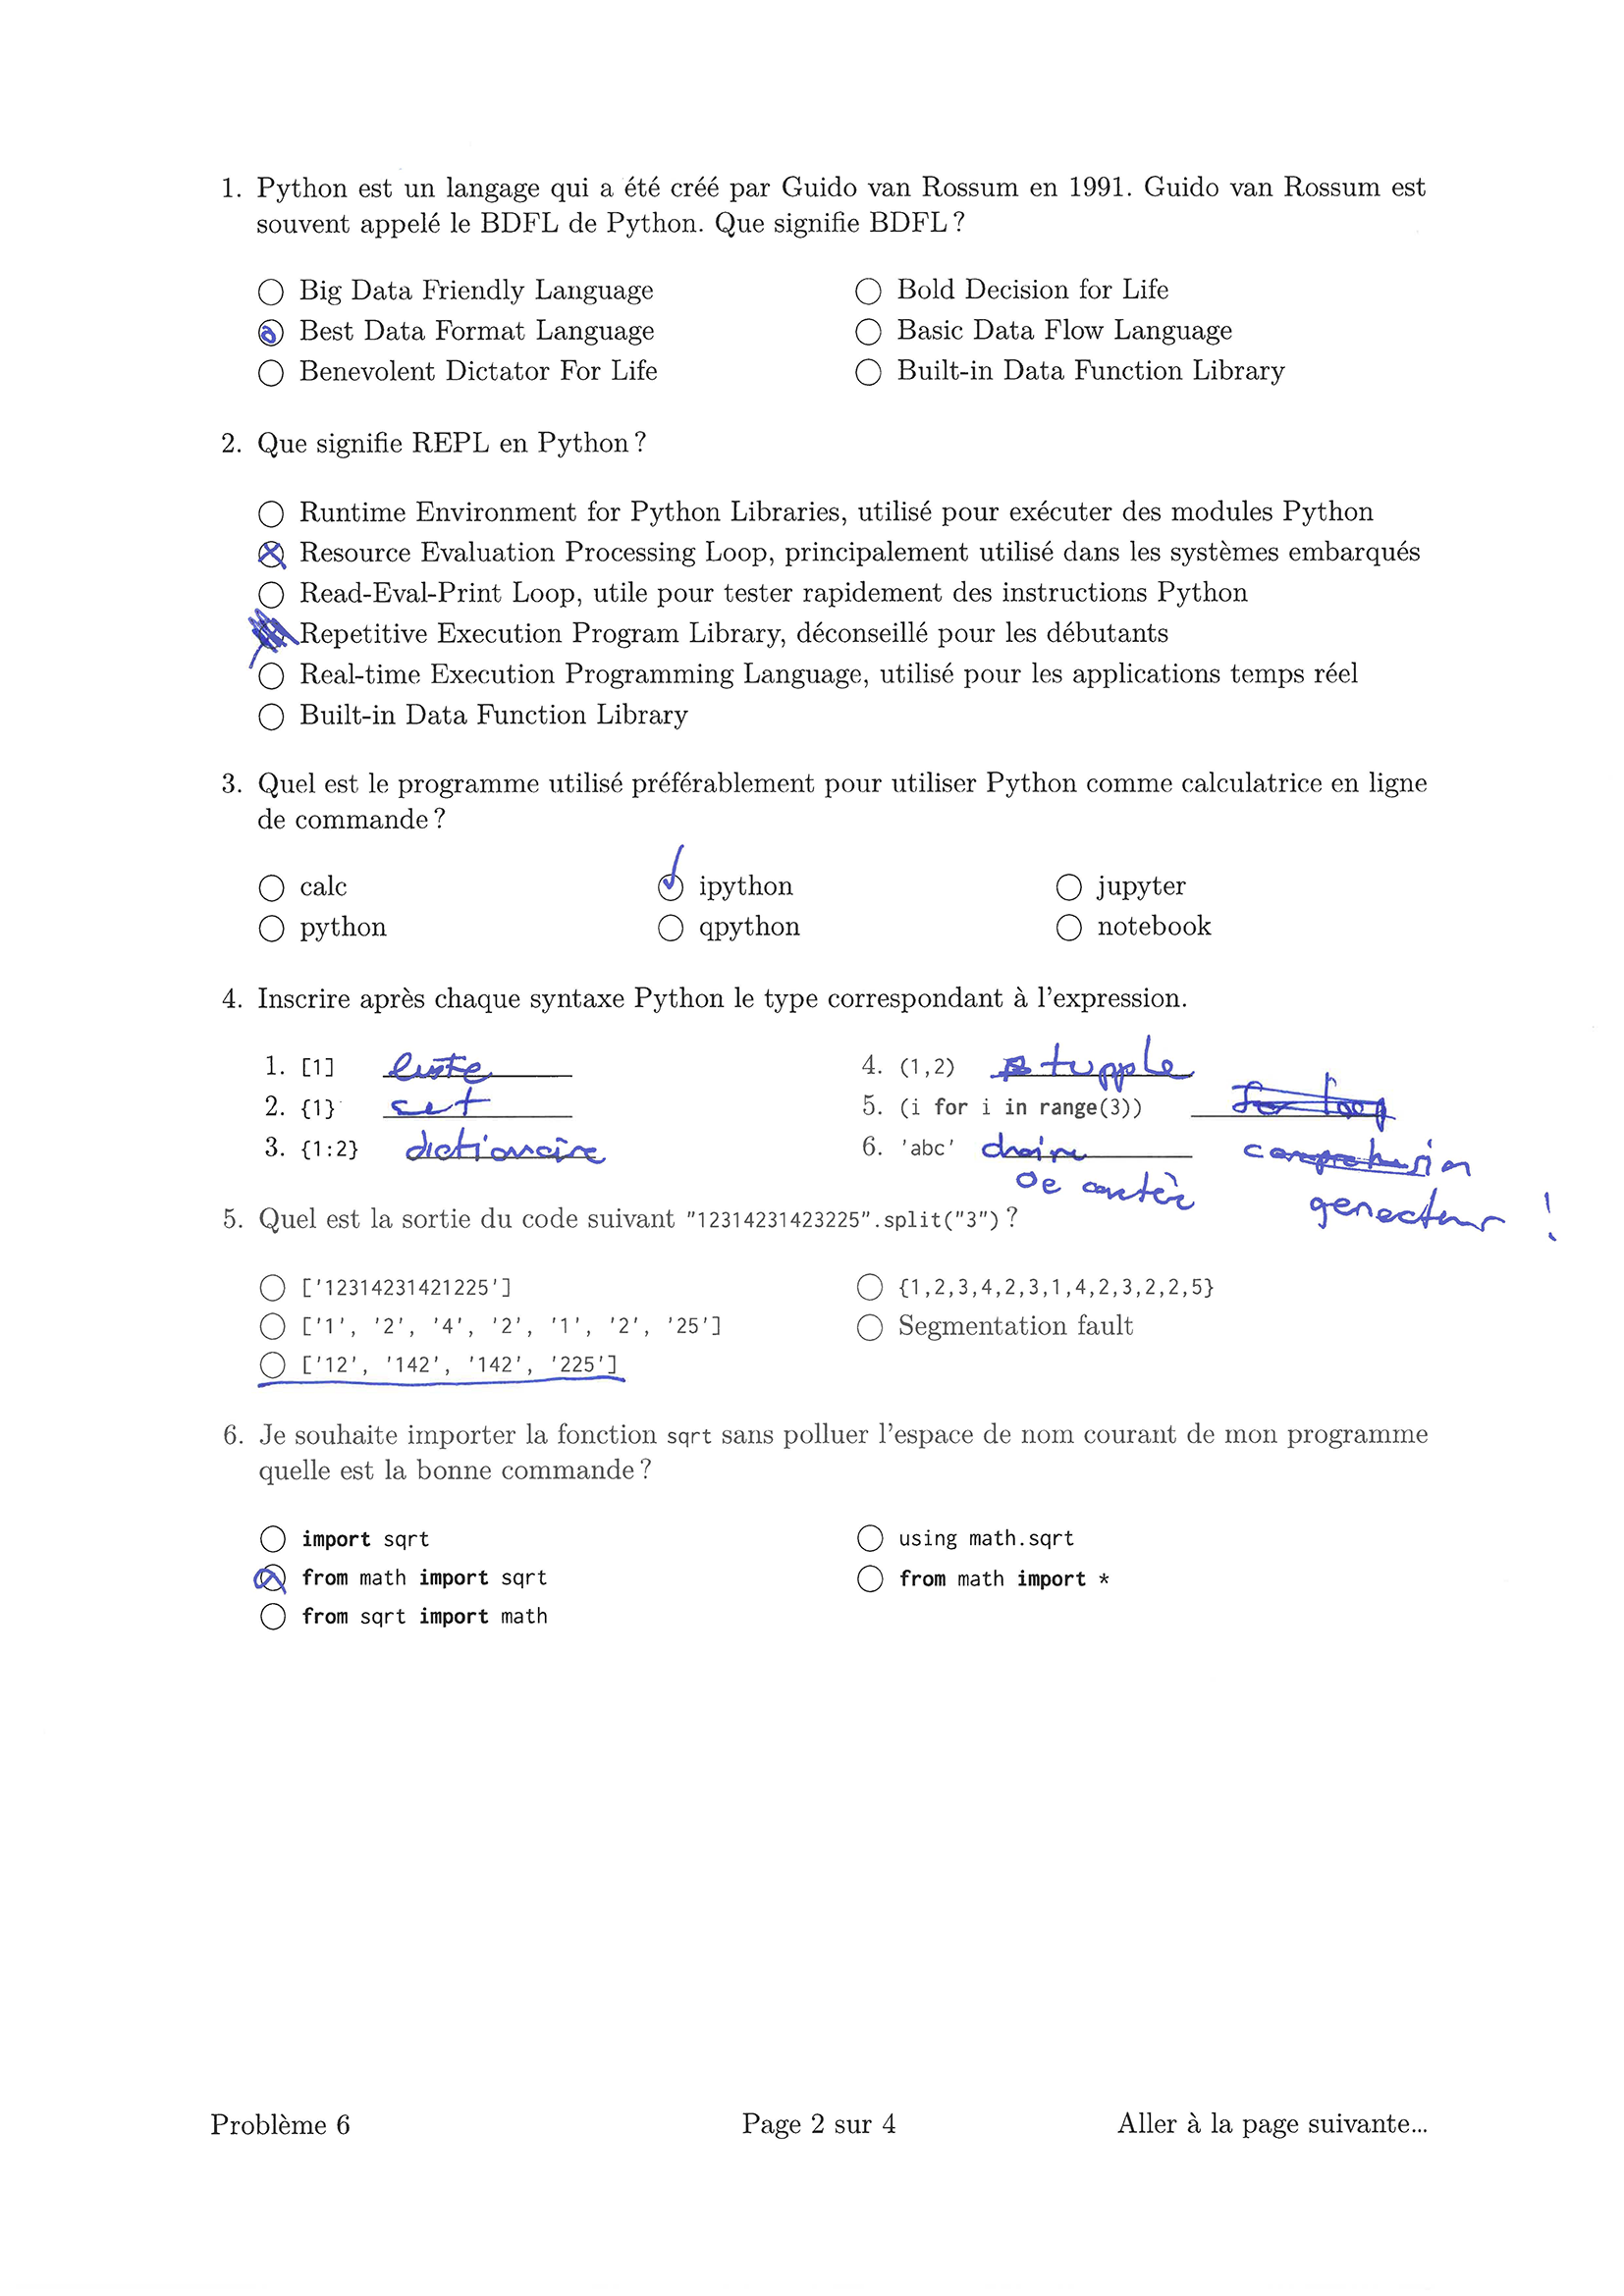 1. Python est un langage qui a été créé par Guido van Rossum en 1991. Guido van Rossum est
souvent appelé le BDFL de Python. Que signifie BDFL ?
Big Data Friendly Language
Best Data Format Language
Benevolent Dictator For Life
Bold Decision for Life
Basic Data Flow Language
Built-in Data Function Library
2. Que signifie REPL en Python ?
Runtime Environment for Python Libraries, utilisé pour exécuter des modules Python
Resource Evaluation Processing Loop, principalement utilisé dans les systèmes embarqués
Read-Eval-Print Loop, utile pour tester rapidement des instructions Python
Repetitive Execution Program Library, déconseillé pour les débutants
Real-time Execution Programming Language, utilisé pour les applications temps réel
Built-in Data Function Library
3. Quel est le programme utilisé préférablement pour utiliser Python comme calculatrice en ligne
de commande ?
calc
python
ipython
qpython
jupyter
notebook
4. Inscrire après chaque syntaxe Python le type correspondant à l'expression.
1. [1] liste
2. {1} set
3. {1:2} dictionaire
4. (1,2) tupple
5. (i for i in range(3)) for loop
comprehension
generateur !
6. 'abc' chaine
de
5. Quel est la sortie du code suivant "12314231423225".split("3") ?
['12314231421225']
['1', '2', '4', '2', '1', '2', '25']
['12', '142', '142', '225']
{1,2,3,4,2,3,1,4,2,3,2,2,5}
Segmentation fault
6. Je souhaite importer la fonction sqrt sans polluer l'espace de nom courant de mon programme
quelle est la bonne commande ?
import sqrt
from math import sqrt
from sqrt import math
using math.sqrt
from math import *
Problème 6
Page 2 sur 4
Aller à la page suivante...